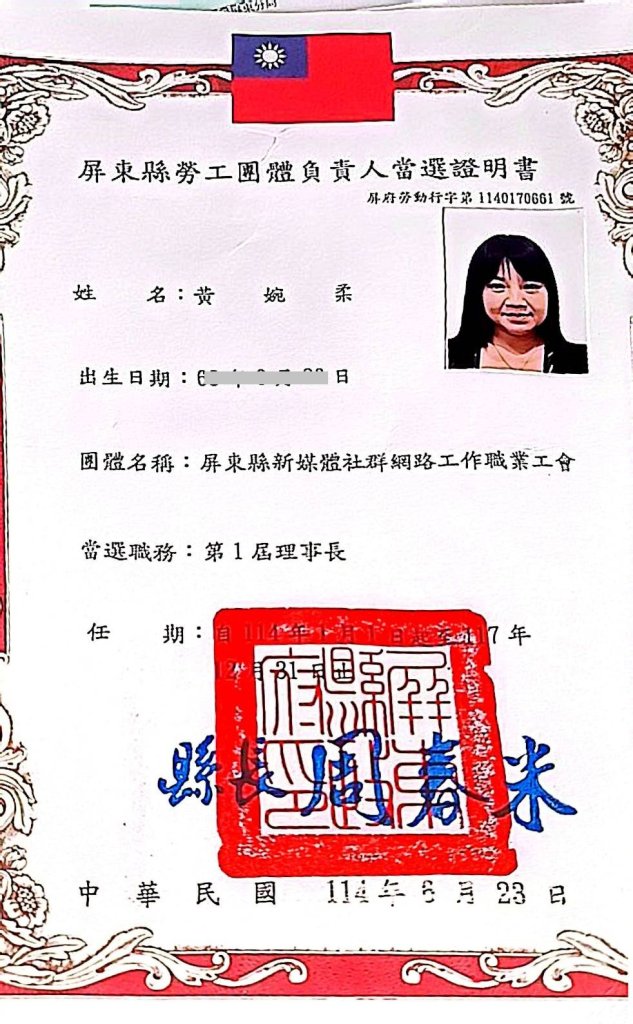 屏東縣勞工團體負責人當選證明書
屏府勞動行字第 1140170661 號
姓 名：黃 婉 柔
出生日期：6 日
團體名稱：屏東縣新媒體社群網路工作職業工會
當選職務：第 1 屆理事長
任 期：自 114 年 1 月 1 日起至 117 年
12 月 31 日止
屏東縣政府印
縣長 周春米
中 華 民 國 114 年 6 月 23 日